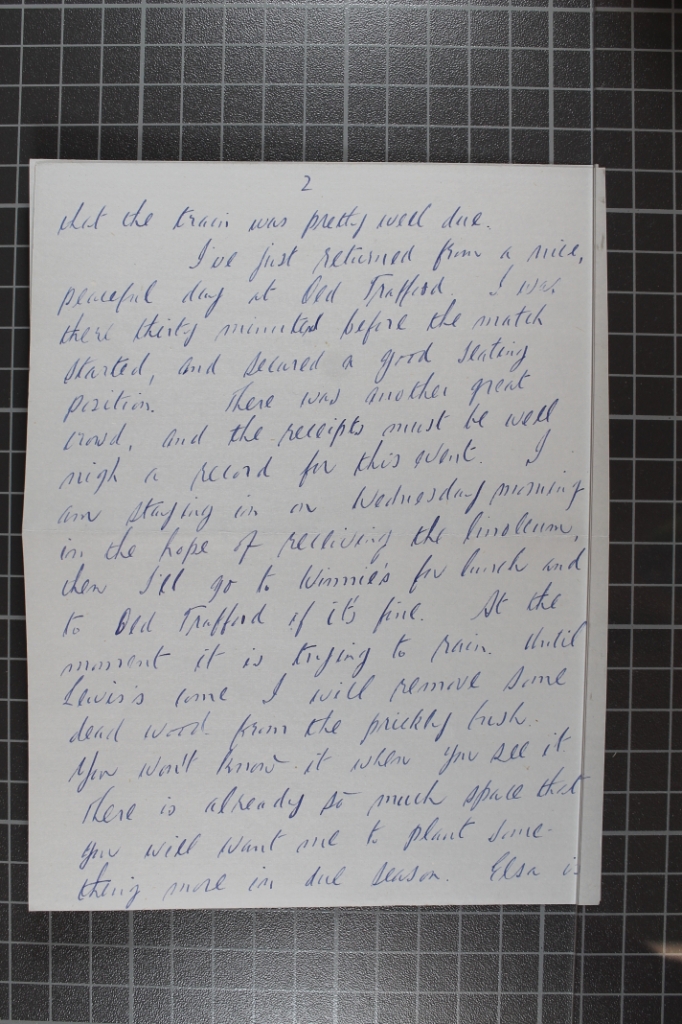 2
that the train was pretty well due.
I've just returned from a nice,
peaceful day at Old Trafford. I was
there thirty minutes before the match
started, and secured a good seating
position. There was another great
crowd, and the receipts must be well
nigh a record for this event. I
am staying in on Wednesday morning
in the hope of receiving the linoleum,
then I'll go to Winnie's for lunch and
to Old Trafford if it's fine. At the
moment it is trying to rain. Until
Lewis's come I will remove some
dead wood from the prickly bush.
You won't know it when you see it.
There is already so much space that
you will want me to plant some-
thing more in due season. Elsa is